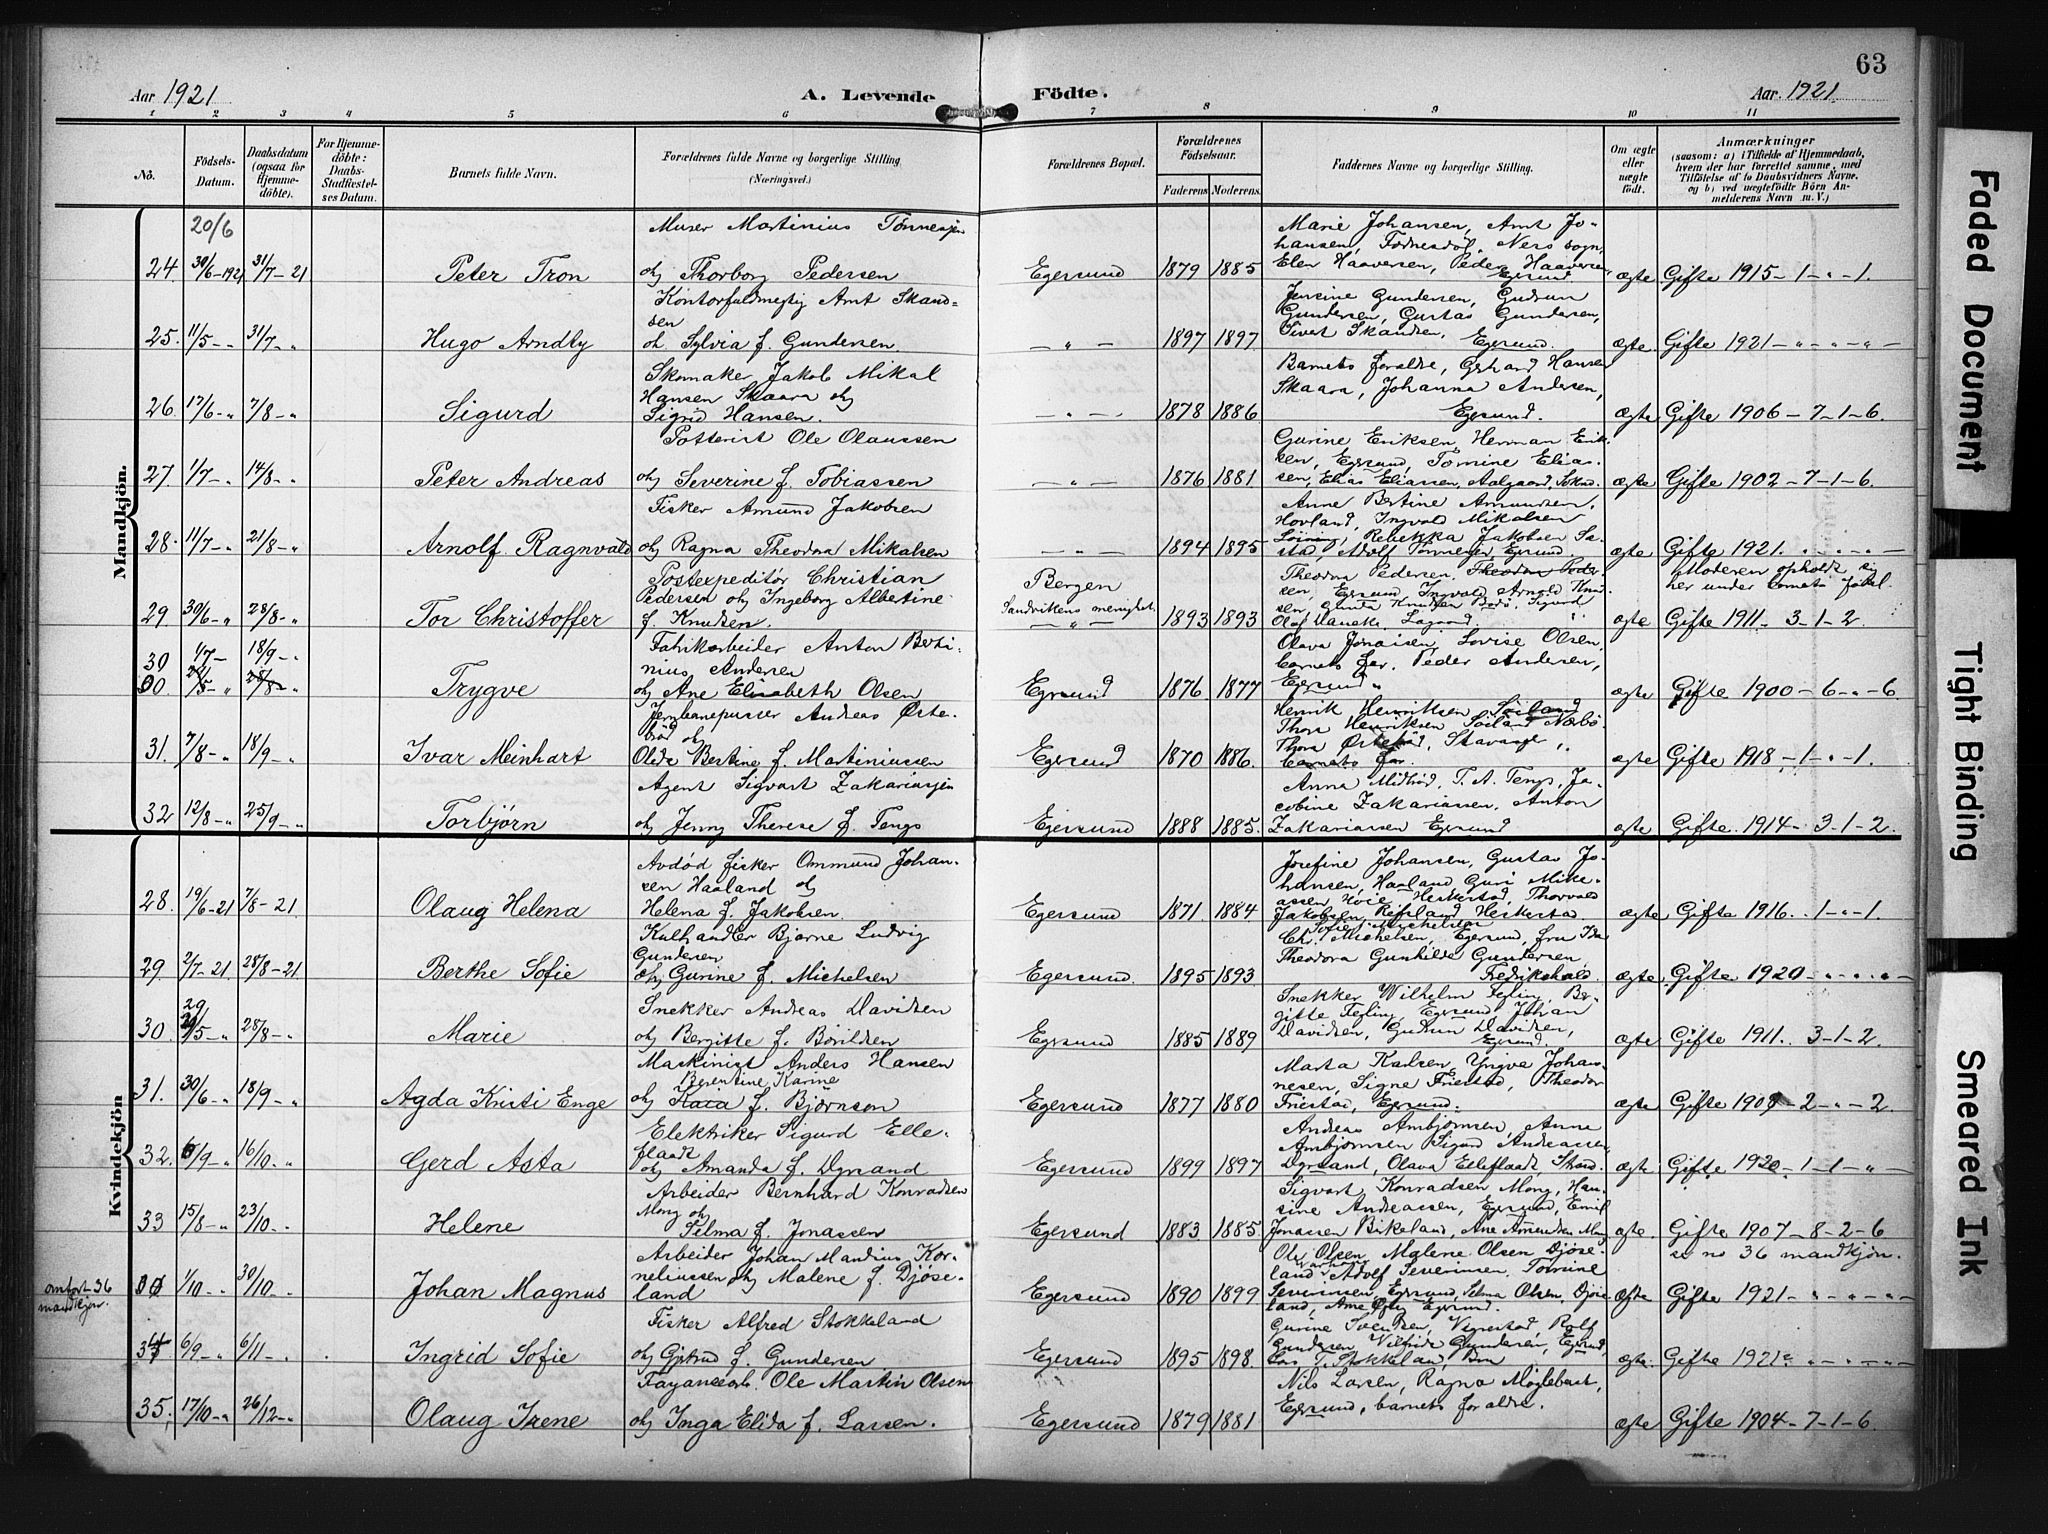 63
Aar 1921
A. Levende Födte.
Aar. 1921
1 2 3 4 5 6 7 8 9 10 11
No.
Födsels-
Datum.
Daabsdatum
(ogsaa for
Hjemme-
döbte).
For Hjemme-
döbte:
Daabs-
Stadfæstel-
ses Datum.
Barnets fulde Navn.
Forældrenes fulde Navne og borgerlige Stilling
(Næringsvei.)
Forældrenes Bopæl.
Forældrenes
Födselsaar.
Faderens Moderens.
Faddernes Navne og borgerlige Stilling.
Om ægte
eller
uægte
födt.
Anmærkninger
(saasom: a) i Tilfælde af Hjemmedaab,
hvem der har forrettet samme, med
Tilföielse af to Daabsvidners Navne,
og b) ved uægtefödte Börn An-
melderens Navn m. V.)
Mandkjön.
20/6
24. 30/6-1921 31/7-21
Peter Tron
Murer Martinius Tönnesen
og Thorborg Pedersen
Egersund 1879 1885
Marie Johansen, Arnt Jo-
hansen, Födnesdal, Ners sogn,
Elen Haaversen, Peder Haaversen,
Egersund.
ægte Gifte 1915-1-"-1.
25. 11/5-" 31/7-"
Hugo Arndby
Kontorfuldmegtig Arnt Skand-
sen
og Sylvia f. Gundersen.
-"- 1897 1897.
Jensine Gundersen, Gudrun
Gundersen, Gustav Gundersen,
Sivert Skandsen, Egersund.
ægte. Gifte 1921-"-"-"-
26. 17/6-" 7/8-"
Sigurd
Skomaker Jakob Mikal
Hansen Skaara og
Sigrid Hansen.
-"- 1878 1886
Barnets foraldre, Gerhard Hansen
Skaara, Johanna Andersen,
Egersund.
ægte Gifte 1906-7-1-6.
27. 1/7-" 14/8-"
Peter Andreas
Potterist Ole Olaussen
og Severine f. Tobiassen
-"- 1876 1881
Gurine Eriksen, Herman Erik-
sen, Egersund, Tomine Elias-
sen, Elias Eliassen, Aalgaard, Soknd.
ægte Gifte 1902-7-1-6.
28. 11/7-" 21/8-"
Arnolf Ragnvald
Fisker Amund Jakobsen
og Ragna Theodora Mikalsen
-"- 1894 1895
Anne Bertine Amundsen,
Hovland, Ingvald Mikalsen
Rebekka Jakobsen
Adolf Tønnesen, Egersund.
ægte Gifte 1921.
29 30/6-" 28/8-"
Tor Christoffer
Postexpeditör Christian
Pedersen og Ingeborg Albertine
f. Knudsen.
Bergen
Sandvikens menighet
1893 1893
Theodora Pedersen, Theodora Peder-
sen, Egersund, Ingvald Arnold Knud-
sen, Knudsen Bodö, Sigurd
ægte
Moderen opholdt sig
her under barnets födsel.
Gifte 1911-3-1-2.
30 1/7- 18/9-"
30. 28/8-"
Trygve
Fabrikarbeider Anton Berti-
nius Andersen
og Ane Elisabeth Olsen
Egersund 1876 1877
Olava Jonassen, Lovise Olsen,
barnets far, Peder Andersen,
Egersund
ægte Gifte 1900-6-"-6
31. 7/8-" 18/9-"
Ivar Meinhart
Jernbanepusser Andreas Øste-
bröd og
Olide Bertine f. Martiniussen
Egersund 1870 1886.
Henrik Henriksen Söiland
Thora Henriksen Söiland Nærbö
Thora Østebröd, Stavanger,
barnets far.
ægte Gifte 1918-1-"-1.
32 12/8-" 25/9-"
Torbjørn
Agent Sigvart Zakariassen
og Jenny Therese f. Tengs
Egersund 1888 1885.
Anna Midbröd, T. A. Tengs, Ja-
cobine Zakariassen, Anton
Zakariassen Egersund
ægte Gifte 1914-3-1-2.
Kvindekjön
28. 19/6-21 7/8-21.
Olaug Helena
Avdød fisker Ommund Johan-
sen Haaland og
Helena f. Jakobsen.
Egersund 1871 1884
Josefine Johansen, Gustav Jo-
hansen, Haaland, Guri Mike-
assen Hoie, Heskestad, Thorvald
Jakobsen, Refsland Heskestad.
ægte Gifte 1916.-1-"-1
29. 2/7-21. 28/8-21
Berthe Sofie
Kulhandler Bjarne Ludvig
Gundersen
og Gurine f. Michelsen
Egersund 1895 1893.
Sofie Michelsen
Chr. Michelsen, Egersund, fru Ida
Theodora Gunhilde Gundersen,
Fredrikshald.
ægte Gifte 1920-"-"-"-
30. 29/5-" 28/8-"
Marie
Snekker Andreas Davidsen
og Bergitte f. Böildsen
Egersund 1885 1889
Snekker Wilhelm Feyling, Ber-
gitte Feyling, Egersund, Johan
Davidsen, Gudrun Davidsen,
Egersund.
ægte Gifte 1911. 3-1-2.
31. 30/6-" 18/9-"
Agda Kristi Enge
Maskinist Anders Hansen
Berentine Karine
og Kaia f. Björnson
Egersund 1877 1880
Marta Karlsen, Yngve Johan-
nesen, Signe Friestad, Theodor
Friestad, Egersund.
ægte Gifte 1908-2-"-2.
32. 6/9-" 16/10."
Gerd Asta
Elektriker Sigurd Elle-
flaadt
og Amanda f. Dyrsand
Egersund 1899 1897
Andreas Ambjörnsen, Anna
Ambjörnsen, Sigurd Andreassen,
Dyrsand, Olava Elleflaadt,
ægte. Gifte 1920-1-1-"-
33 15/8-" 23/10-.
Helene
Arbeider Bernhard Konradsen
Mong og
Silma f. Jonassen
Egersund 1883 1885.
Sigvart Konradsen Mong, Han-
sine Andreassen, Egersund, Emil
Jonassen Birkeland, Ane Amundsen Mong
ægte. Gifte 1907-8-2-6
omfört 36
mandkjøn.
1/10-" 30/10-"
Johan Magnus
Arbeider Johan Mandius Kor-
neliussen og Malene f. Djöse-
land
Egersund 1890 1899
Ole Olsen, Malene Olsen Djöse-
land, Adolf Severinsen, Tomine
Severinsen, Egersund, Selma Olsen, Djöse-
land, Ane Egersund.
se no 36 mandkjøn.
ægte Gifte 1921-"-"-"-
34 6/9-" 6/11-.
Ingrid Sofie
Fisker Alfred Stokkeland
og Gjertrud f. Gundersen
Egersund 1895 1898.
Gurine Svendsen, Vegrestad, Rolf
Gundersen, Vilfride Gundersen, Egersund,
Lars T. Stokkeland,
ægte. Gifte 1921
35. 17/10-" 26/12-"
Olaug Irene
Fayancearb. Ole Martin Olsen
og Inga Elida f. Larsen.
Egersund 1879 1881
Nils Larsen, Ragna Mögleberst,
Egersund, barnets foraldre.
ægte Gifte 1904-7-1-6
Faded Document
Tight Binding
Smeared Ink